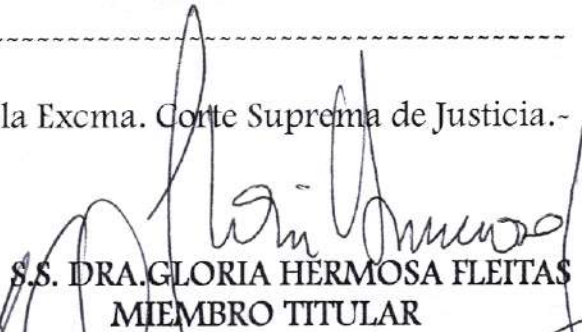 la Excma. Corte Suprema de Justicia.-
S.S. DRA.GLORIA HERMOSA FLEITAS
MIEMBRO TITULAR